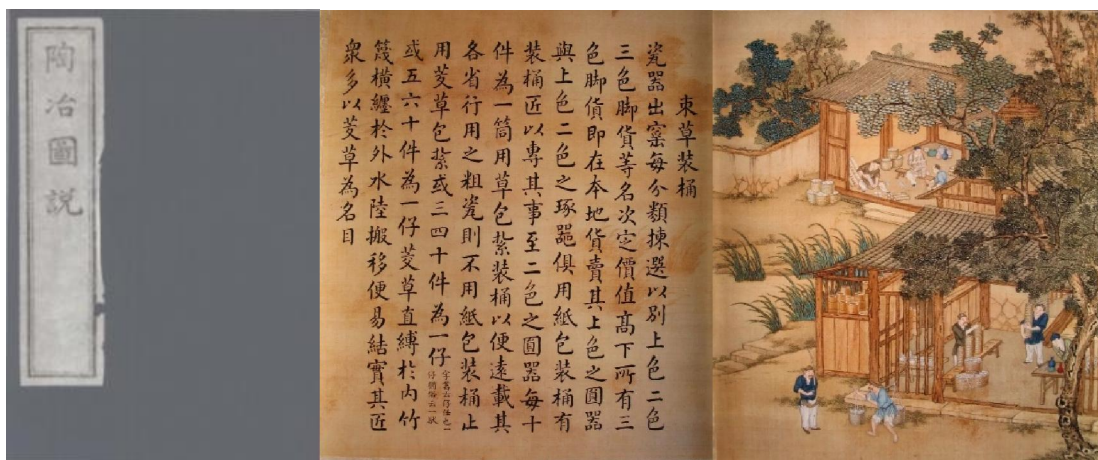 陶冶圖說
束草装桶
瓷器出窯每分類揀選以别上色二色
三色脚貨等名次定價值髙下所有三
色脚貨即在本地貨賣其上色之圓器
與上色二色之琢噐俱用紙包装桶有
装桶匠以專其事至二色之圓器每十
件為一筒用草包紮装桶以便逺載其
各省行用之粗瓷則不用紙包装桶止
用茭草包紮或三四十件為一仔
或五六十件為一仔茭草直縛於内竹
篾横纏於外水陸搬移便易結實其匠
衆多以茭草為名目